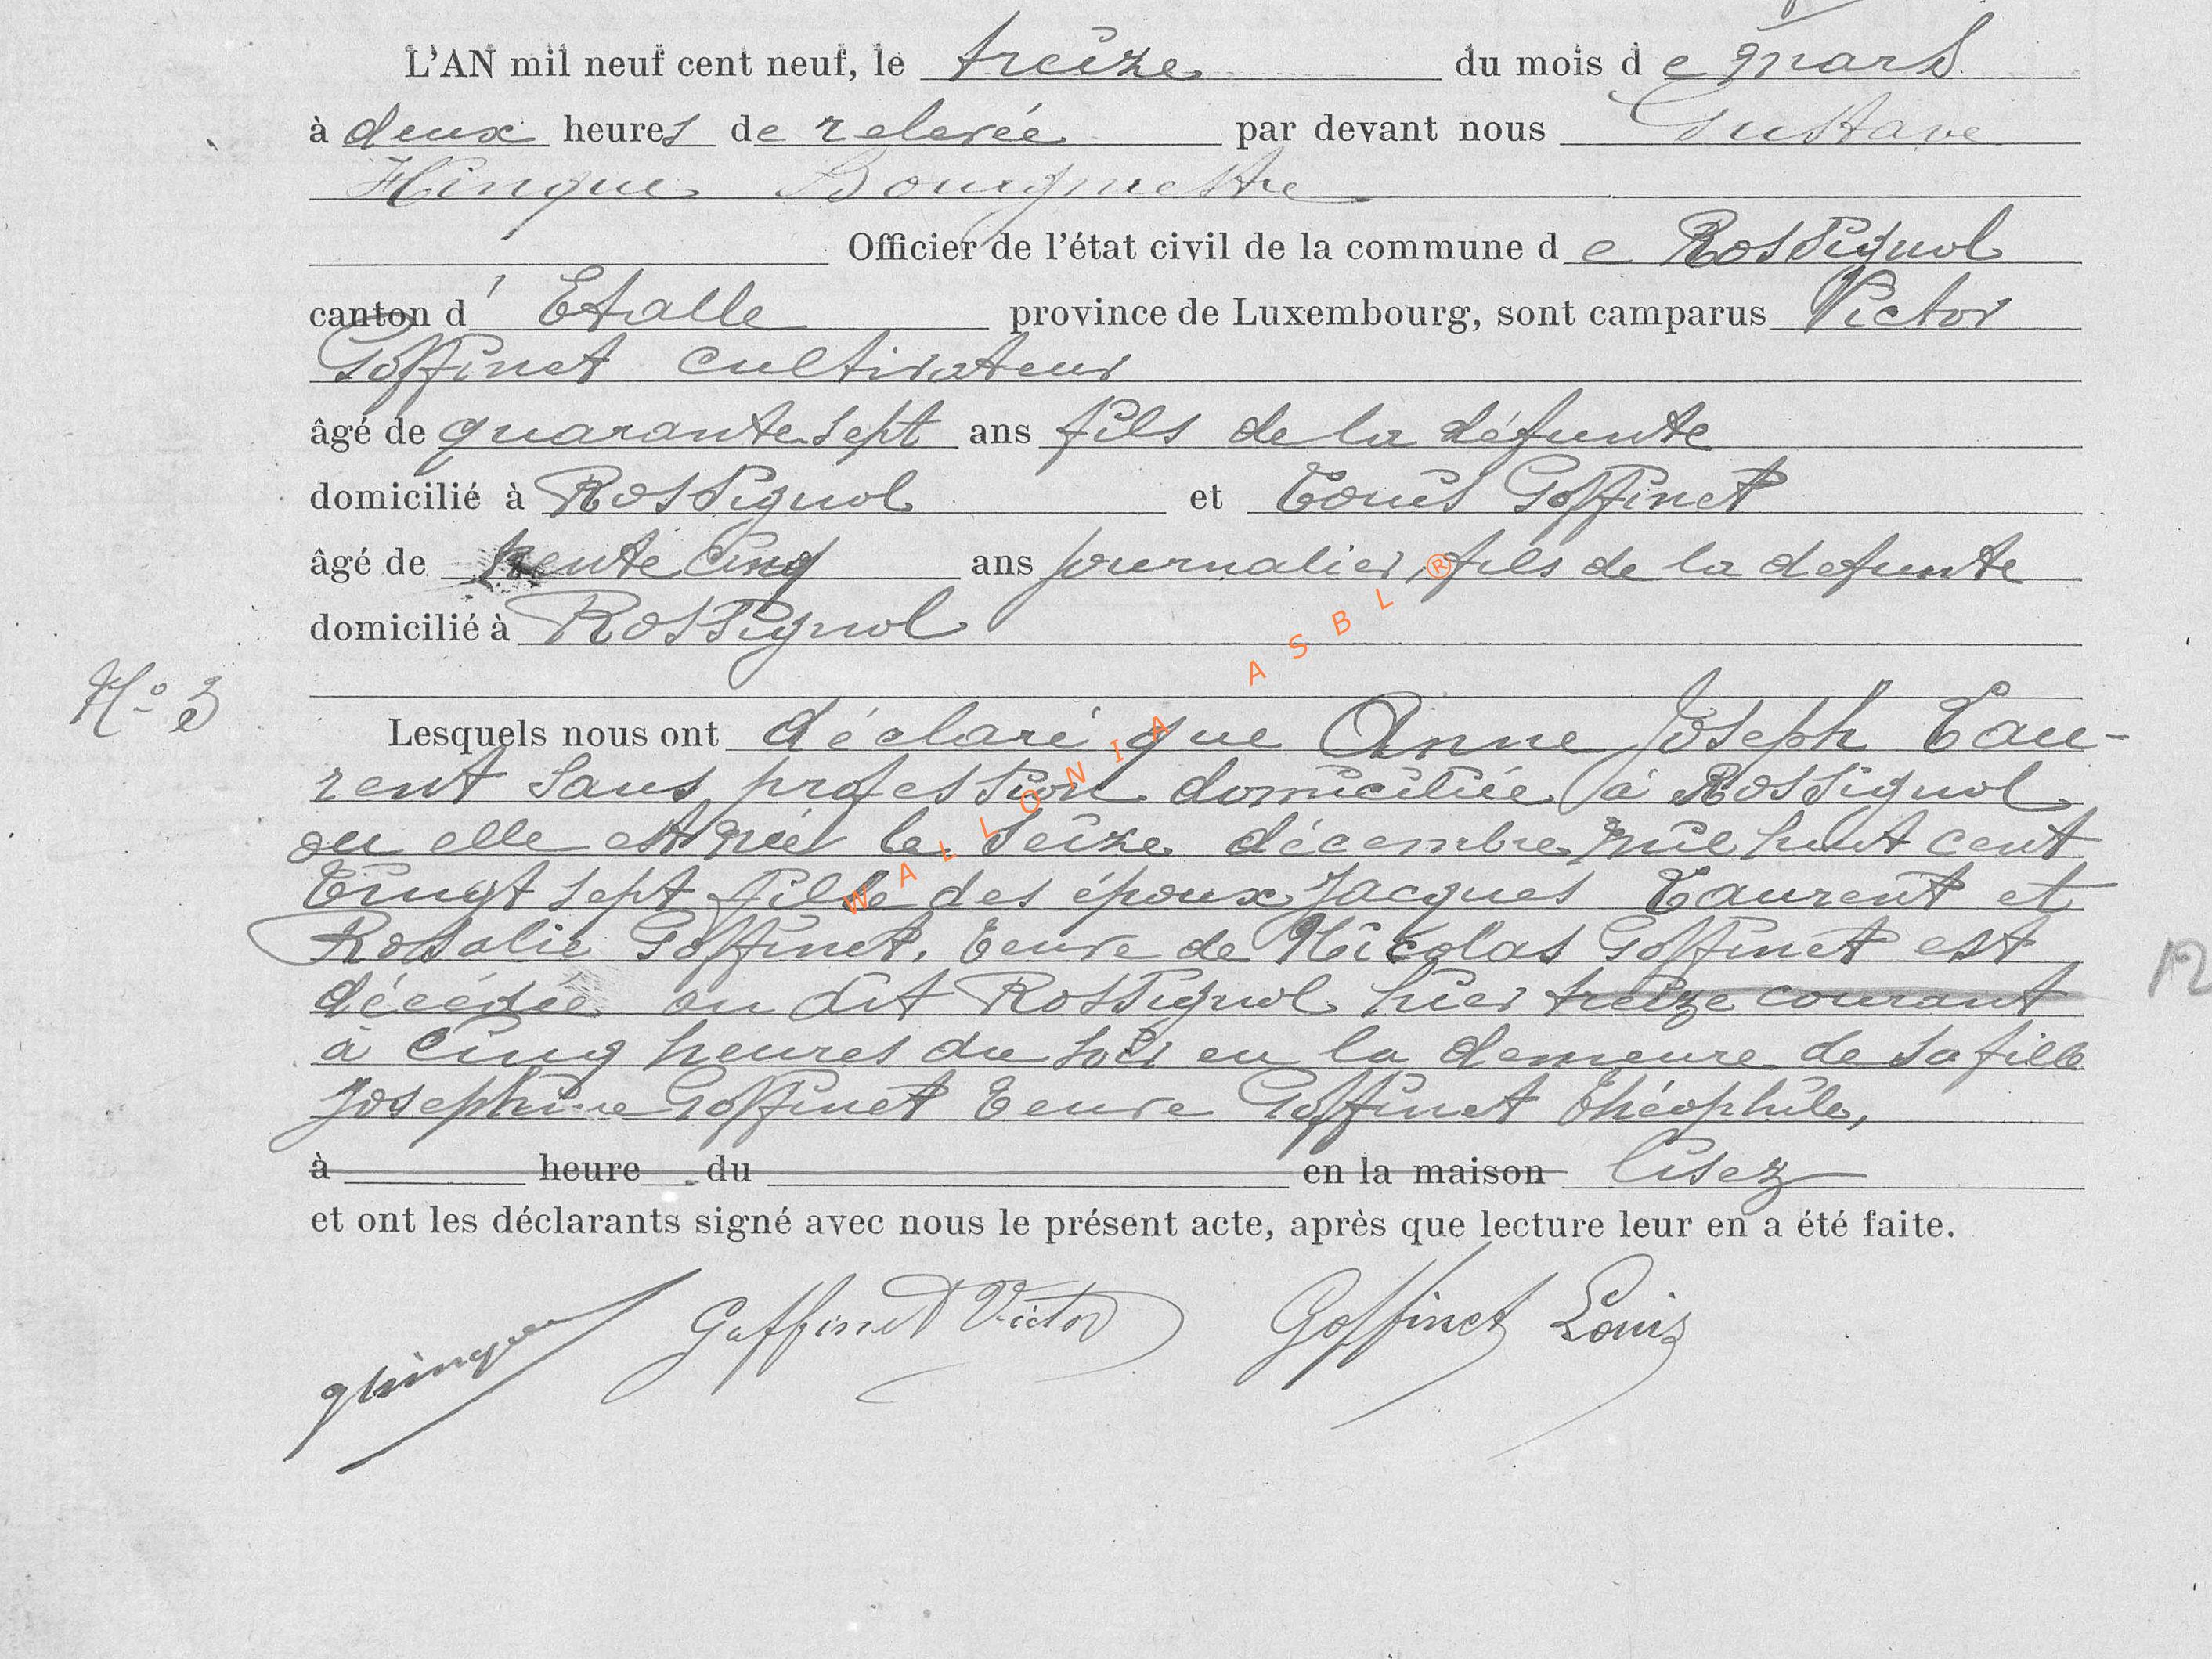 L'AN mil neuf cent neuf, le treize du mois de mars
à deux heures de relevée par devant nous Gustave
Hinque Bourgmestre
Officier de l'état civil de la commune de Rossignol
canton d' Etalle province de Luxembourg, sont camparus Victor
Goffinet cultivateur
âgé de quarante sept ans fils de la défunte
domicilié à Rossignol et Louis Goffinet
âgé de trente cinq ans journalier, fils de la defunte
domicilié à Rossignol
N° 3
Lesquels nous ont déclaré que Anne Joseph Lau-
rent sans profession domiciliée à Rossignol
ou elle est née le seize décembre mil huit cent
vingt sept fille des époux Jacques Laurent et
Rosalie Goffinet, veuve de Nicolas Goffinet est
décédée au dit Rossignol hier treize courant
12
à cinq heures du soir en la demeure de sa fille
Josephine Goffinet veuve Goffinet Théophile,
à heure du en la maison lisez
et ont les déclarants signé avec nous le présent acte, après que lecture leur en a été faite.
Goffinet Victor Goffinet Louis
WALLONIA ASBL ®